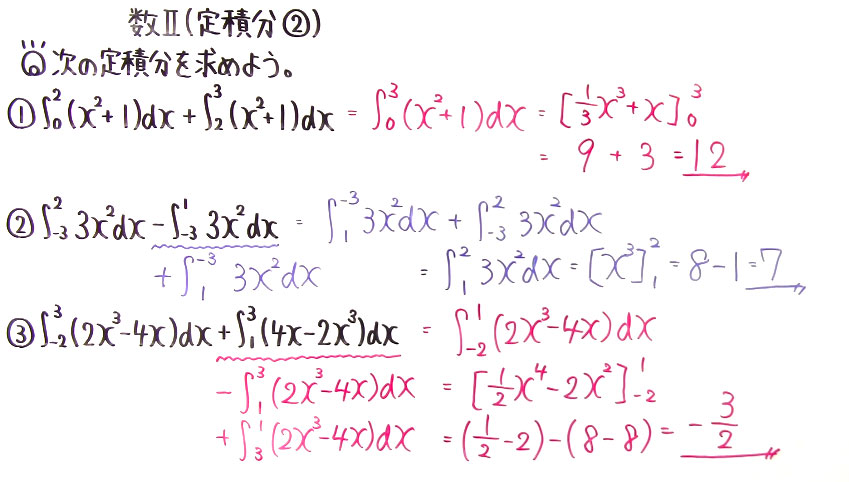 数Ⅱ(定積分②)
次の定積分を求めよう。
①∫₀²(x²+1)dx+∫₂³(x²+1)dx = ∫₀³(x²+1)dx = [1/3x³+x]₀³
= 9 + 3 = 12
②∫₋₃²3x²dx-∫₋₃¹3x²dx = ∫₁⁻³3x²dx + ∫₋₃²3x²dx
+∫₁⁻³3x²dx = ∫₁²3x²dx = [x³]₁² = 8-1=7
③∫₋₂³(2x³-4x)dx+∫₁³(4x-2x³)dx = ∫₋₂¹(2x³-4x)dx
-∫₁³(2x³-4x)dx = [1/2x⁴-2x²]₋₂¹
+∫₃¹(2x³-4x)dx = (1/2-2)-(8-8) = -3/2